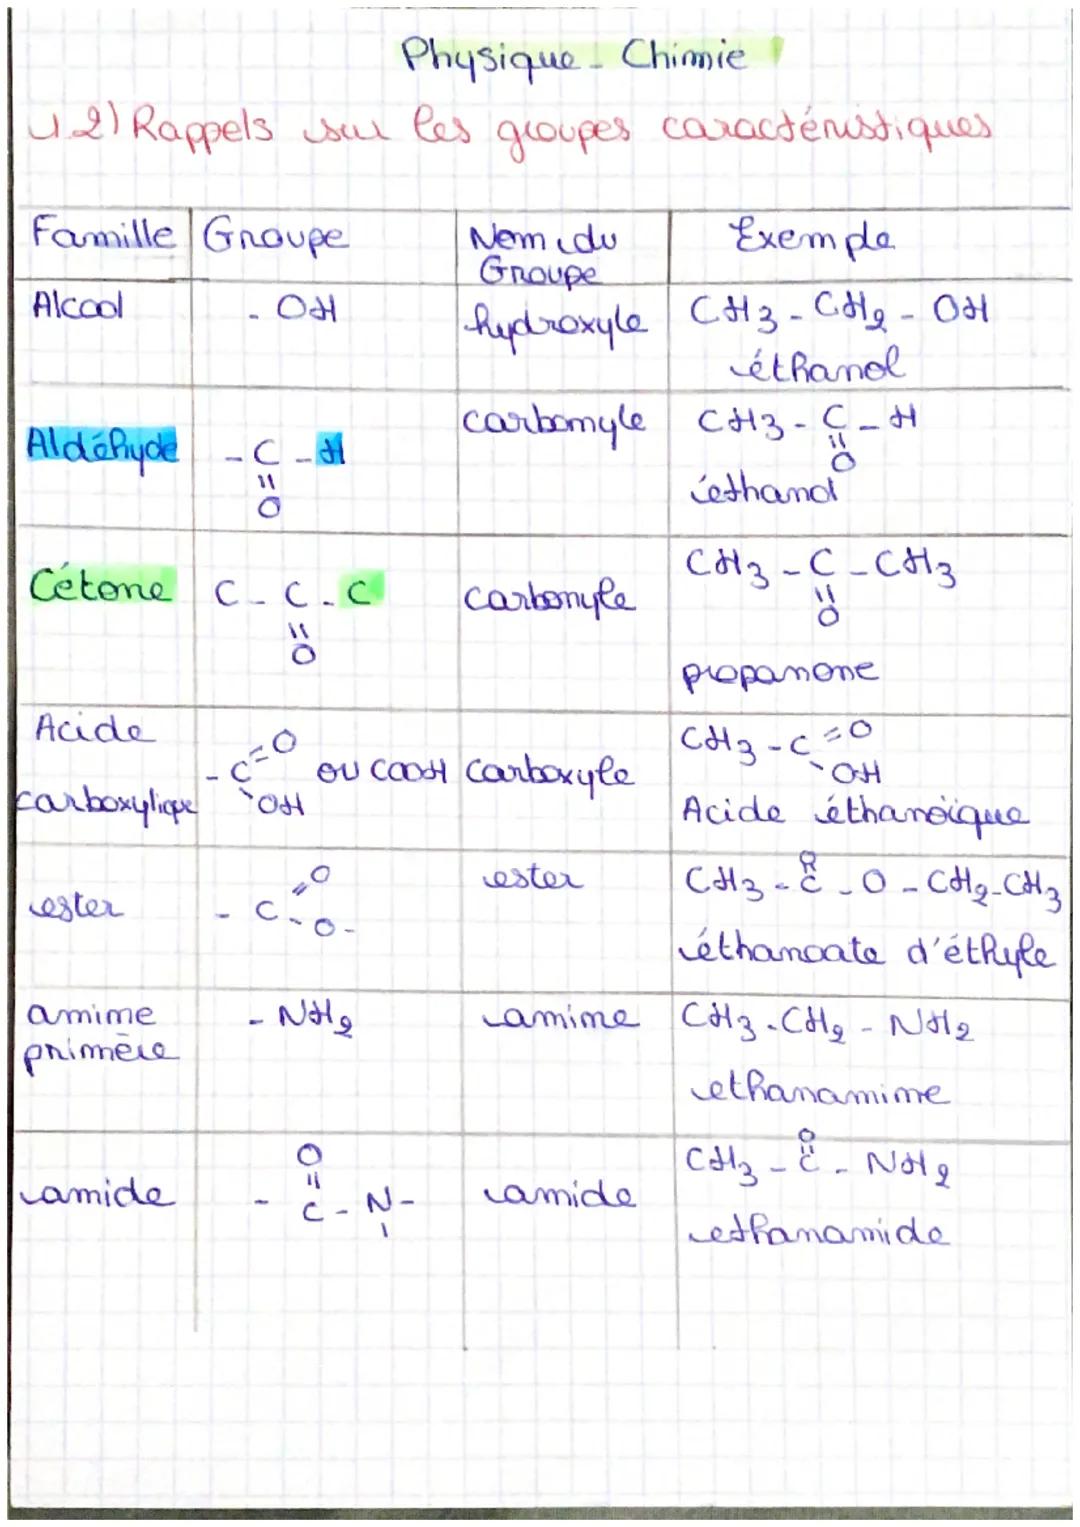 Physique - Chimie
1.2) Rappels sur les groupes caractéristiques
Famille Groupe Nom du Groupe Exemple
Alcool - OH hydroxyle CH3 - CH2 - OH
éthanol
Aldéhyde - C - H carbonyle CH3 - C - H
=O =O
éthanal
Cétone C - C - C carbonyle CH3 - C - CH3
=O =O
propanone
Acide carboxylique - C =O - OH ou COOH carboxyle CH3 - C =O - OH
Acide éthanoïque
ester - C =O - O - ester CH3 - C - O - CH2 - CH3
=O
éthanoate d'éthyle
amime primère - NH2 amime CH3 - CH2 - NH2
ethanamime
amide - C - N - amide CH3 - C - NH2
=O =O
ethanamide